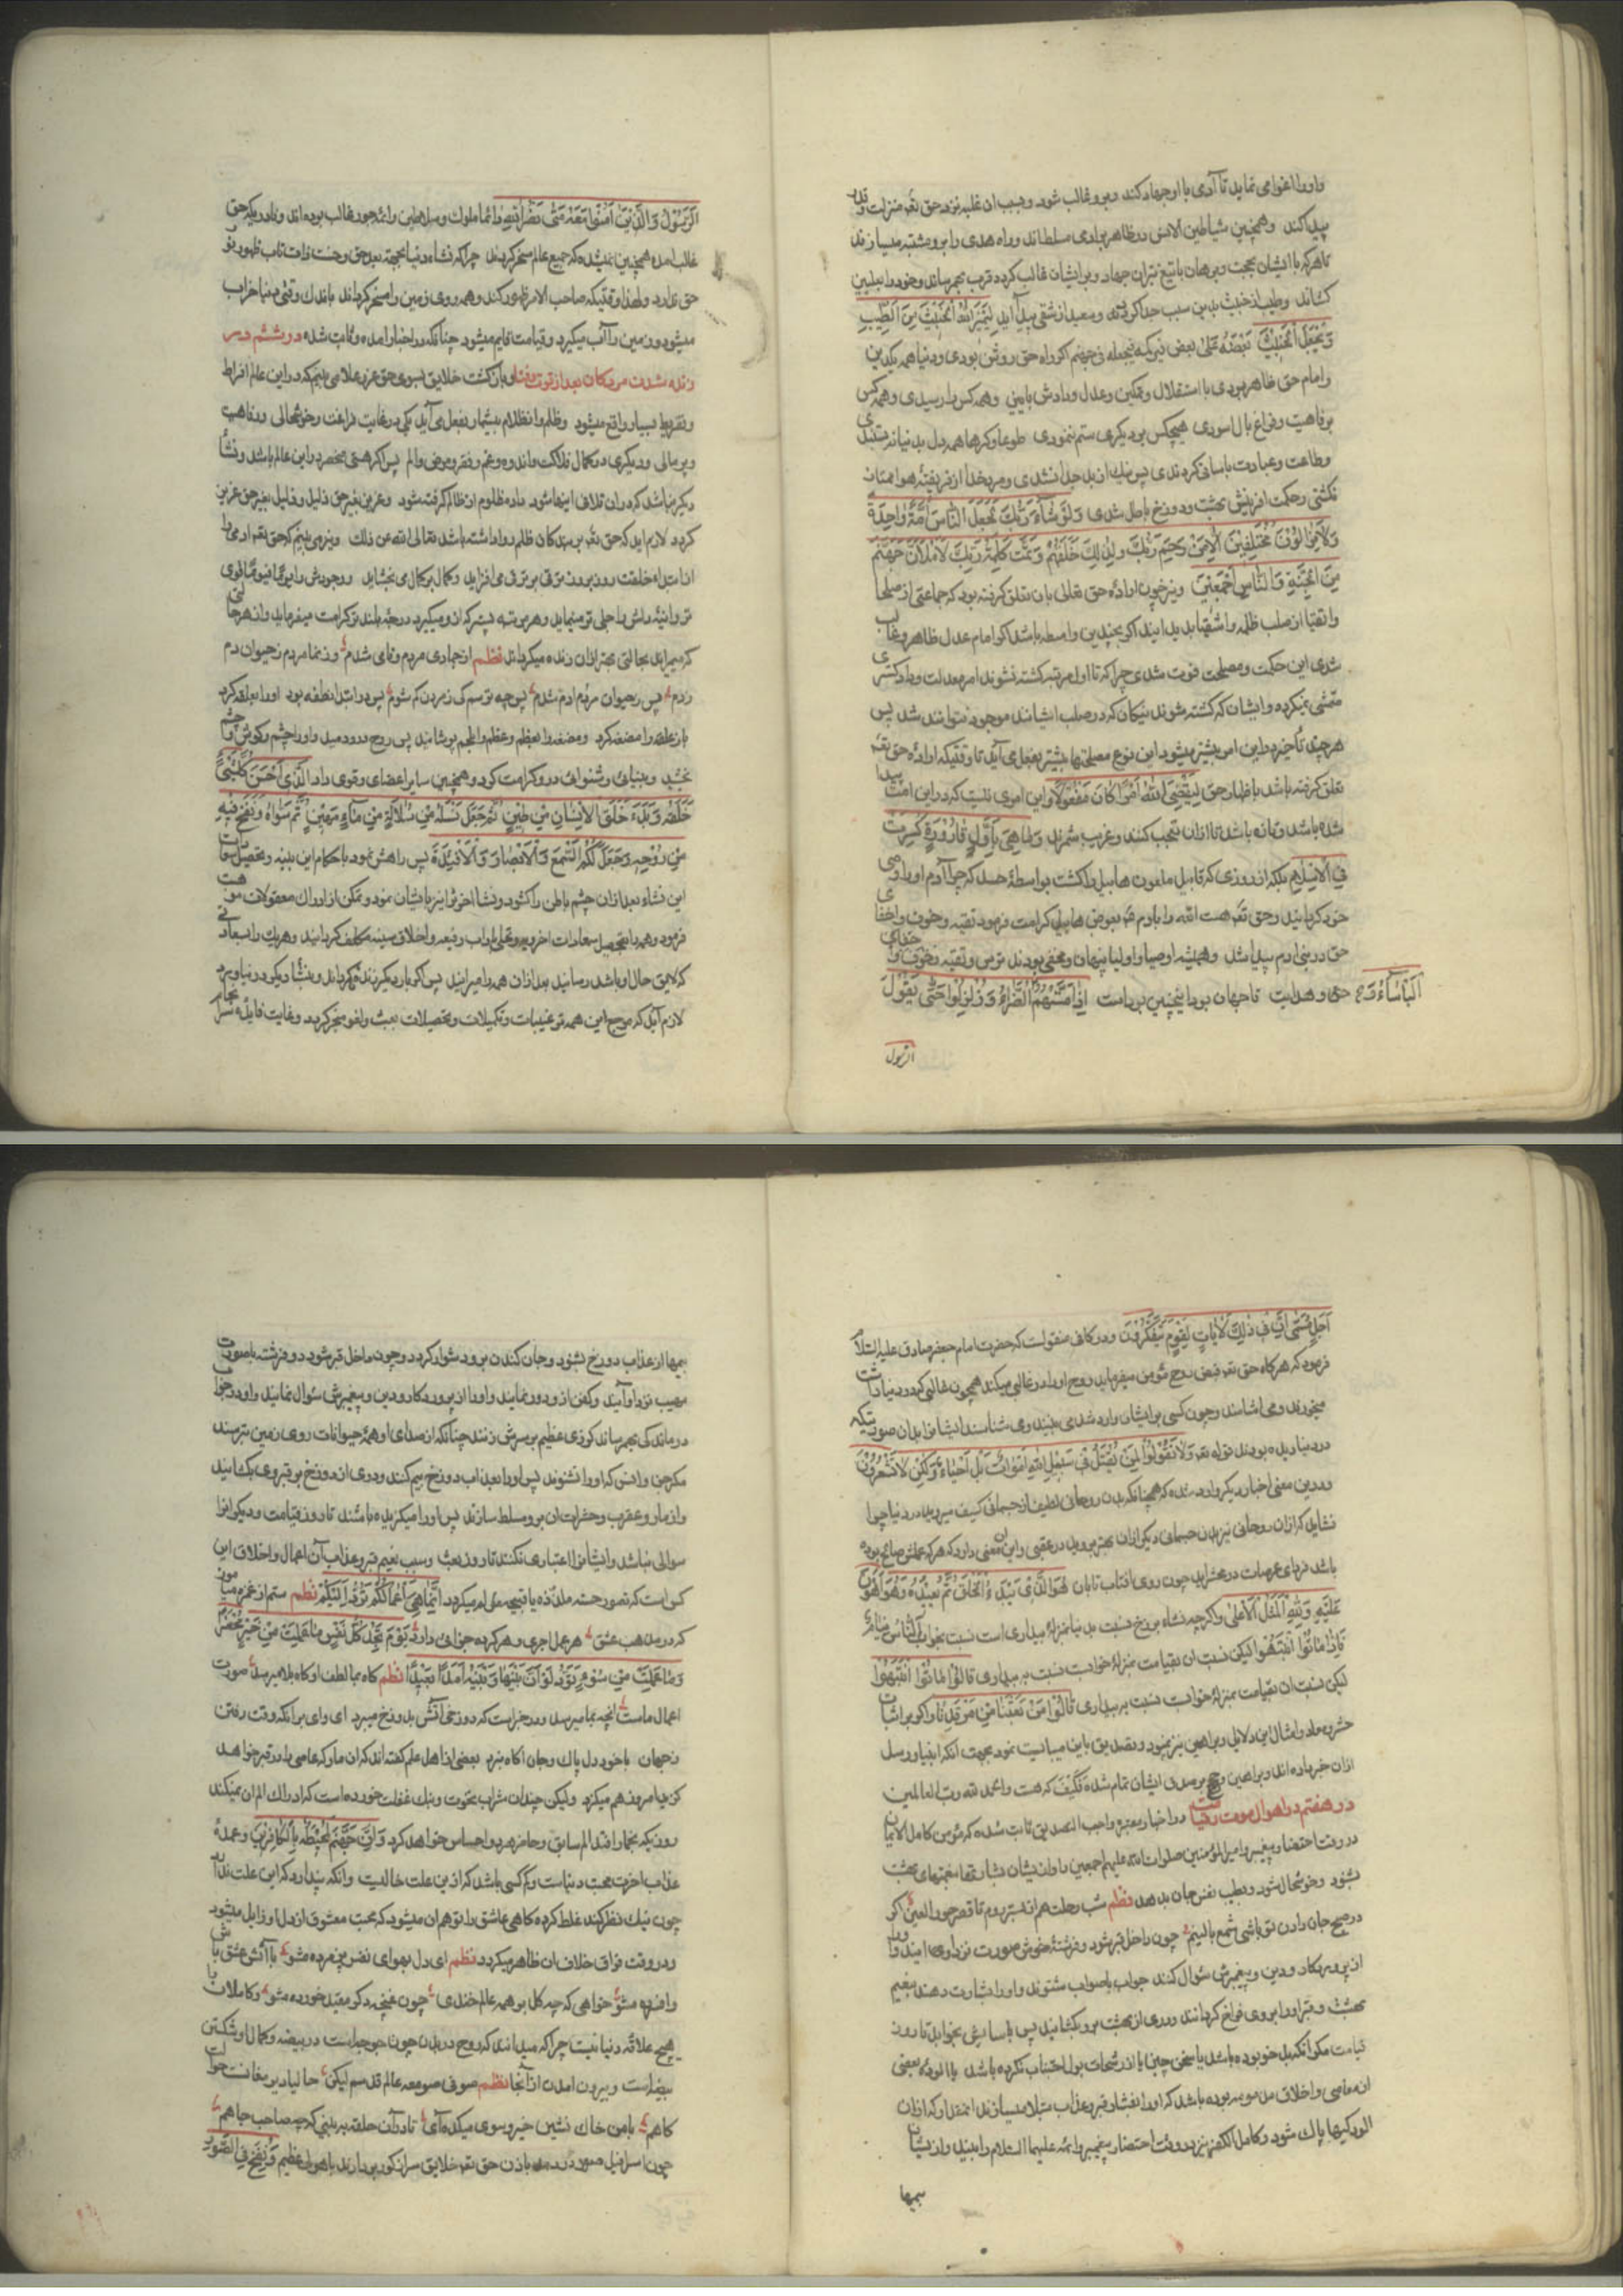 واورا اغوا می نماید تا آدمی با او جهاد کند وبرو غالب شود وبسبب ان غلبه نزد حق تعه منزلت وقدر
پیدا کند وهمچنین شیاطین الانس در ظاهر بر آدمی مسلط اند وراه هدی را برو مشتبه میسازند
تا هرکه با ایشان بحجت وبرهان یا تیغ بران جهاد وبر ایشان غالب کردد قرب بهم رساند وخود را
کشاند وطیب از خبیث بدین سبب جدا کردد وسعید از شقی پیدا آید لِیَمِیزَ اللهُ الْخَبِیثَ مِنَ الطَّیِّبِ
وَیَجْعَلَ الْخَبِیثَ بَعْضَهُ عَلَی بعض فیرکمه فیجعله فی جهنم اکر راه حق روشن بودی ودر دنیا همه یکدین
وامام حق ظاهر بودی با استقلال وتمکین وعدل ودادش بایینی وهمه کس را رسیدی وهمه کس
برفاهیت وفراغ بال اسودی هیچکس بر دیکری ستم ننمودی طوعا وکرها همه دل بدنیا نه بستندی
وطاعت وعبادت باسانی کردندی پس نیك از بد جدا نشدی ومرد خدا از فریفتهٔ هوا ممتاز
نکشتی وحکمت افرینش بهشت ودوزخ باطل شدی وَلَوْ شَاءَ رَبُّكَ لَجَعَلَ النَّاسَ اُمَّةً وَاحِدَةً
وَلَا یَزَالُونَ مُخْتَلِفِینَ اِلَّا مَنْ رَحِمَ رَبُّكَ ولِذٰلِكَ خَلَقَهُمْ وَتَمَّتْ کَلِمَةُ رَبِّكَ لَاَمْلَاَنَّ جَهَنَّمَ
مِنَ الْجِنَّةِ وَالنَّاسِ اَجْمَعِینَ ونیز چون ارادهٔ حق تعالی بان تعلق کرفته بود که جماعتی از صلحا
واتقیا از صلب ظلمه واشقیا بدید ایند اکرچه بچندین واسطه باشد اکر امام عدل ظاهر وغالب
شدی این حکمت ومصلحت فوت شدی چرا که تا او مرتبه کشته نشوند امر معدلت ودادکستری
متمشی نمیکردد وایشان که کشته شوند نیکان که در صلب ایشانند موجود نتوانند شد پس
هر چند تأخیر در این امر بیشتر میشود این نوع مصلحتها بیشتر بفعل می آید تا وقتیکه ارادهٔ حق تعه
تعلق کرفته باشد باظهار حق لِیَقْضِیَ اللهُ اَمْرًا کَانَ مَفْعُولًا واین امری نیست که در این امت پیدا
شده باشد وتازه باشد تا از ان تعجب کنند وغریب شمرند وَمَا هِیَ بِاَوَّلِ قَارُورَةٍ کُسِرَتْ
فِی الْاِسْلَامِ بلکه از روزی که قابیل ملعون هابیل را کشت بواسطهٔ حسد که چرا آدم اورا وصی
خود کردانید وحق تعه هبت الله را بادم عه بعوض هابیل کرامت فرمود تقیه وخوف واخفای
حق در بنی ادم پیدا شد وهمیشه اوصیا واولیا پنهان ومخفی بودند ترس وتقیه وخوف وخفای
حق وهدایت تا جهان بود اینچنین بود است اِذَا مَسَّتْهُمُ الْبَاْسَاءُ وَالضَّرَّاءُ وَزُلْزِلُوا حَتَّی یَقُولَ
الرسول
الرَّسُولُ وَالَّذِینَ اٰمَنُوا مَعَهُ مَتَی نَصْرُ اللهِ ودائما ملوك وسلاطین وائمهٔ جور غالب بوده اند ونادر یکه حق
غالب امده همچنین نمیشده که جمیع عالم مسخر کردند چرا که نشاه دنیا بجهة بعد حق وخست ذات تاب ظهور نور
حق ندارد ولهذا وقتیکه صاحب الامر ظهور کند وهمه روی زمین را مسخر کرداند باندك وقتی دنیا خراب
میشود وزمین را آب میکیرد وقیامت قایم میشود چنانکه در اخبار امده وثابت شده در ششم در
زنده شدن مردکان بعد از فوت وفنا وبازکشت خلایق بسوی حق عز وعلا می بینم که در این عالم افراط
وتفریط بسیار واقع میشود وظلم وانظلام بیشمار بفعل می آید یکی در غایت فراغت وخوشحالی ورفاهیت
وپر مالی ودیکری در کمال فلاکت واندوه وغم وفقر ومرض والم پس اکر هستی منحصر در این عالم باشد ونشأ
دیکر نباشد که در ان تلافی اینها شود داد مظلوم از ظالم کرفته شود وعزیز بغیر حق ذلیل وذلیل بغیر حق عزیز
کردد لازم اید که حق تعه بر بندکان ظلم روا داشته باشد تعالی الله عن ذلك ونیز می بینم که حق تعه ادمی را
از ابتداء خلقت روز بروز ترقی بر ترقی می افزاید وکمال بر کمال می بخشاید ووجودش را یوما فیوما قوی
تر ودانیه داش را جلی تر مینماید وهر مرتبه پستتر که از و میکیرد درجهٔ بلند تر کرامت میفرماید واز هر حالتی
که میراند بحالتی بهتر از ان زنده میکرداند نظم از جمادی مردم ونامی شدم وز نما مردم ز حیوان دم
زدم پس ز حیوان مردم ادم شدم پس چه ترسم کی ز مردن کم شوم پس در ابتدا نطفه بود اورا علقه کرد
باز علقه را مضغه کرد ومضغه را بعظم وعظم را بلحم پوشانید پس روح در و دمید واورا چشم وکوش وجسم
بخشید وبینائی وشنوائی در و کرامت کرد وهمچنین سایر اعضای وقوی داد الَّذِی اَحْسَنَ کُلَّ شَیْءٍ
خَلَقَهُ وَبَدَءَ خَلْقَ الْاِنْسَانِ مِنْ طِینٍ ثُمَّ جَعَلَ نَسْلَهُ مِنْ سُلَالَةٍ مِنْ مَاءٍ مَهِینٍ ثُمَّ سَوَّاهُ وَنَفَخَ فِیهِ
مِنْ رُوحِهِ وَجَعَلَ لَکُمُ السَّمْعَ وَالْاَبْصَارَ وَالْاَفْئِدَةَ پس راهش نمود باحکام این بنیه وتحصیل
این نشاء بعد از ان چشم باطن را کشود ونشا اخری را نیز بایشان نمود وتمکن از ادراك معقولات
فرمود وهمه را بتحصیل سعادات اخرویه وتحلی باداب رفیعه واخلاق سنیه مکلف کردانید وهریك را بسعادتی
که لایق حال او باشد رسانید بعد از ان همه را میرانید پس اکر بار دیکر زنده نکرداند وبنشأ دیکر در نیاورد
لازم آید که مرجع این همه ترغیبات وتکمیلات وتحصیلات بعبث ولغو منجر کردد وغایت فایده
اَجَلٍ مُسَمًّی اِنَّ فِی ذٰلِكَ لَاٰیَاتٍ لِقَوْمٍ یَتَفَکَّرُونَ ودر کافی منقولست که حضرت امام جعفر صادق علیه السّلام
فرمود که هرکاه حق تعه قبض روح مؤمن میفرماید روح اورا در غالبی میکند همچون غالبی که در دنیا داشت
میخورند ومی اشامند وچون کسی بر ایشان وارد شدی می بیند ومی شناسند ایشانرا بدان صورتیکه
در دنیا دیده بودند قوله تعه وَلَا تَقُولُوا لِمَنْ یُقْتَلُ فِی سَبِیلِ اللهِ اَمْوَاتٌ بَلْ اَحْیَاءٌ وَلٰکِنْ لَا تَشْعُرُونَ
ودرین معنی اخبار دیکر وارد شده که همچنانکه بدن روحانی لطیف از جسمانی کثیف میروید در دنیا چرا
نشاید که از ان روحانی نیز بدن جسمانی دیکر از ان بهتر بروید در عقبی واین معنی دارد که هرکه عملش صالح بوده
باشد فردای عرصات در محشر اید چون روی افتاب تابان هُوَ الَّذِی یَبْدَءُ الْخَلْقَ ثُمَّ یُعِیدُهُ وَهُوَ اَهْوَنُ
عَلَیْهِ وَلِلّٰهِ الْمَثَلُ الْاَعْلَی واکرچه نشاء برزخ نسبت بدنیا بمنزلهٔ بیداری است نسبت بخواب اَلنَّاسُ نِیَامٌ
فَاِذَا مَاتُوا انْتَبَهُوا لیکن نسبت ان بقیامت بمنزلهٔ خوابست نسبت به بیداری قَالُوا لِمَا تُوا انْتَبَهُوا
لیکن نسبت ان بقیامت بمنزلهٔ خوابست نسبت به بیداری قَالُوا مَنْ بَعَثَنَا مِنْ مَرْقَدِنَا واکر بر اثبات
حشر ومعاد وامثال این دلائل وبراهین نیز نبود وتصدیق باین میبایست نمود بجهت انکه انبیا ورسل
ازان خبر داده اند وبراهین وحج بر صدق ایشان تمام شده فَکَیْفَ که هست والحمد لله رب العالمین
در هفتم در احوال موت وقیامت در اخبار معتبره واجب التصدیق ثابت شده که مؤمن کامل الایمان
در وقت احتضار پیغمبر وامیر المؤمنین صلوات الله علیهم اجمعین را وازیشان بشارتها بنعمتهای بهشت
بشنود وخوشحال شود وبطیب نفس جان بدهد نظم شب رحلت هم از بستر روم تا قصر حور العین اکر
در صبح جان دادن تو باشی شمع بالینم چون داخل قبر شود دو فرشتهٔ خوش صورت نزد او می ایند واورا
از پروردکار ودین وپیغمبرش سؤال کنند جواب باصواب شنوند واورا بشارت دهند بنعیم
بهشت وقبر اورا بروی فراخ کردانند ودری از بهشت برو بکشایند پس باسایش بخوابد تا روز
قیامت مکر انکه بدخو بوده باشد یا سخن چین یا از رشحات بول اجتناب نکرده باشد یا الوده ببعضی
از معاصی واخلاق مذمومه بوده باشد که اورا بفشار قبر وعذاب مبتلا میسازند انمقدار که ازان
الودکیها پاك شود وکامل الکفر نیز در وقت احتضار پیغمبر وائمه علیهما السلام را ببیند وازیشان
بیمها
بیمها از عذاب دوزخ بشنود وجان کندن برو دشوار کردد وچون داخل قبر شود دو فرشته باصورت
مهیب نزد او آیند وکفن ازو دور نمایند واورا از پروردکار ودین وپیغمبرش سؤال نمایند واو در جواب
درماندکی بهم رساند کرزی عظیم بر سرش زنند چنانکه از صدای او همهٔ حیوانات روی زمین بترسند
مکر جن وانس که اورا نشنوند پس اورا بعذاب دوزخ بیم کنند ودری از دوزخ بر قبر وی بکشایند
واز مار وعقرب وحشرات ان برو مسلط سازند پس اورا میکزیده باشند تا روز قیامت ودیکرانرا
سوالی نباشد وایشانرا اعتباری نکنند تا روز بعث وسبب نعیم قبر وعذاب آن اعمال واخلاق این
کس است که بصور حسنه ملذّه یا قبیحه مؤلمه میکردد اِنَّمَا هِیَ اَعْمَالُکُمْ تُرَدُّ اِلَیْکُمْ نظم ستم از غمزه میاموز
که در مذهب عشق هر عمل اجری وهر کرده جزائی دارد یَوْمَ تَجِدُ کُلُّ نَفْسٍ مَا عَمِلَتْ مِنْ خَیْرٍ مُحْضَرًا
وَمَا عَمِلَتْ مِنْ سُوءٍ تَوَدُّ لَوْ اَنَّ بَیْنَهَا وَبَیْنَهُ اَمَدًا بَعِیدًا نظم کاه بما لطف او کاه بلا میرسد صورت
اعمال ماست انچه بما میرسد ودر خبراست که دوزخی آتش بدوزخ میبرد ای وای برانکه وقت رفتن
زجهان باخود دل پاك وجان اکاه نبرد بعضی از اهل علم کفته اند که ان مار که عاصی را در قبر خواهد
کزید امروز هم میکزد ولیکن چندان شراب نخوت وبنك غفلت خورده است که ادراك الم ان نمیکند
روزیکه بخمار افتد الم سابق وحاضر هردو احساس خواهد کرد وَاِنَّ جَهَنَّمَ لَمُحِیطَةٌ بِالْکَافِرِینَ وعمدهٔ
عذاب اخرت محبت دنیاست وکم کسی باشد که ازین علت خالیست وانکه پندارد که این علت ندارد
چون نیك نظر کند غلط کرده کاهی عاشق را توهم ان میشود که محبت معشوق از دل او زایل میشود
ودر وقت فراق خلاف ان ظاهر میکردد نظم ای دل بهوای نفس پژمرده مشو با آتش عشق باش
وافسرده مشو خواهی که چو کل بر همه عالم خندی چون غنچه دکر مقید خورده مشو وکاملان را
هیچ علاقه دنیا نیست چرا که میدانند که روح در بدن چون جوجه است در بیضه وکمال او شکستن
بیضه است وبیرون امدن از آنجا نظم صوفی صومعه عالم قدسم لیکن حالیا دیر مغانست حوالت
کاهم با من خاك نشین خیز وسوی میکده آی تا در آن حلقه به بینی که چه صاحب جاهم
چون اسرافیل صور در دمد باذن حق تعه خلایق سر از کور بردارند باهول عظیم وَنُفِخَ فِی الصُّورِ